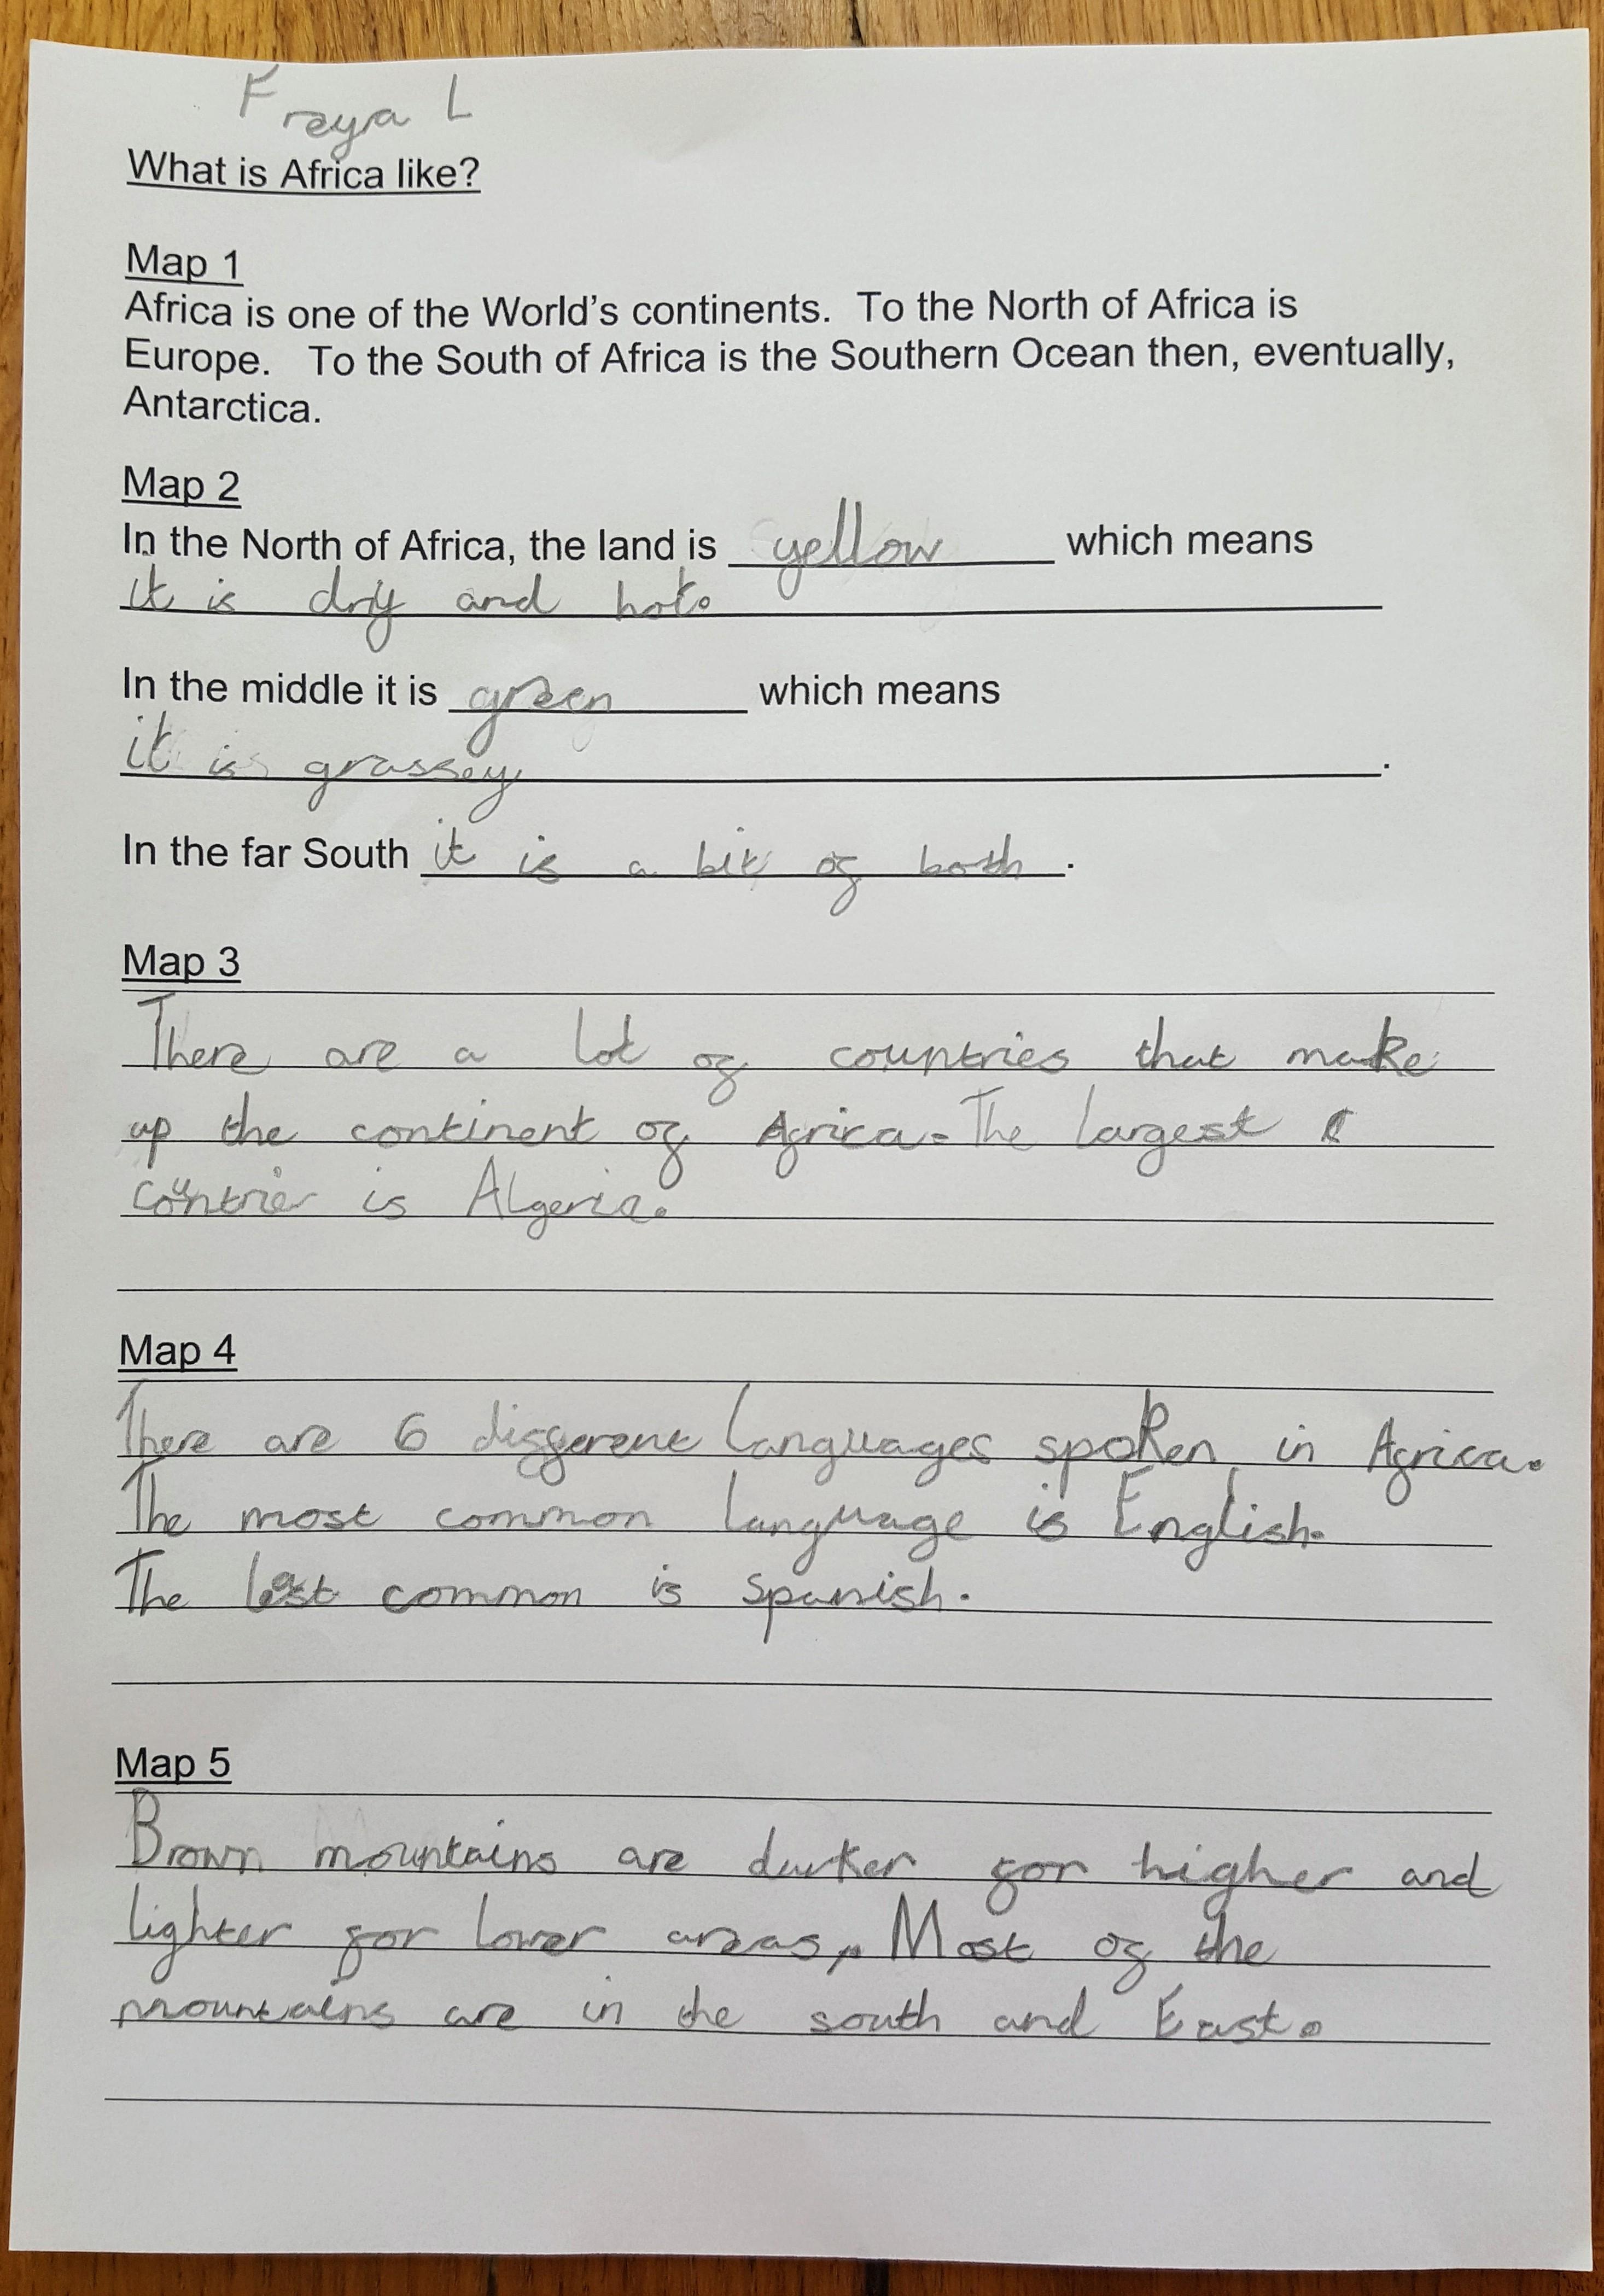 Freya L
What is Africa like?
Map 1
Africa is one of the World's continents. To the North of Africa is
Europe. To the South of Africa is the Southern Ocean then, eventually,
Antarctica.
Map 2
In the North of Africa, the land is yellow which means
it is dry and hot.
In the middle it is green which means
it is grassey.
In the far South it is a bit of both.
Map 3
There are a lot of countries that make
up the continent of Africa. The largest
countrie is Algeria.
Map 4
There are 6 different languages spoken in Africa.
The most common language is English.
The least common is spanish.
Map 5
Brown mountains are darker for higher and
lighter for lower areas. Most of the
mountains are in the south and East.